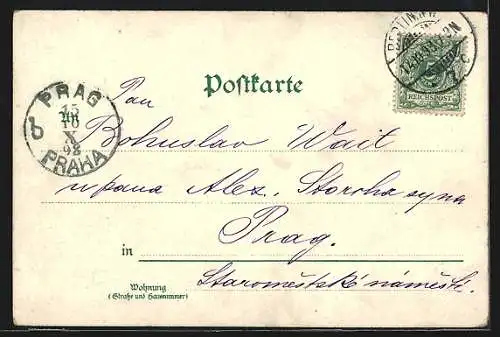 Postkarte
REICHSPOST
PRAG
15
10
X
98
PRAHA
Pan
Bohuslav Wait
u pana Alex. Storcha syna
in Prag.
Staroměstské náměstí.
Wohnung
(Straße und Hausnummer)